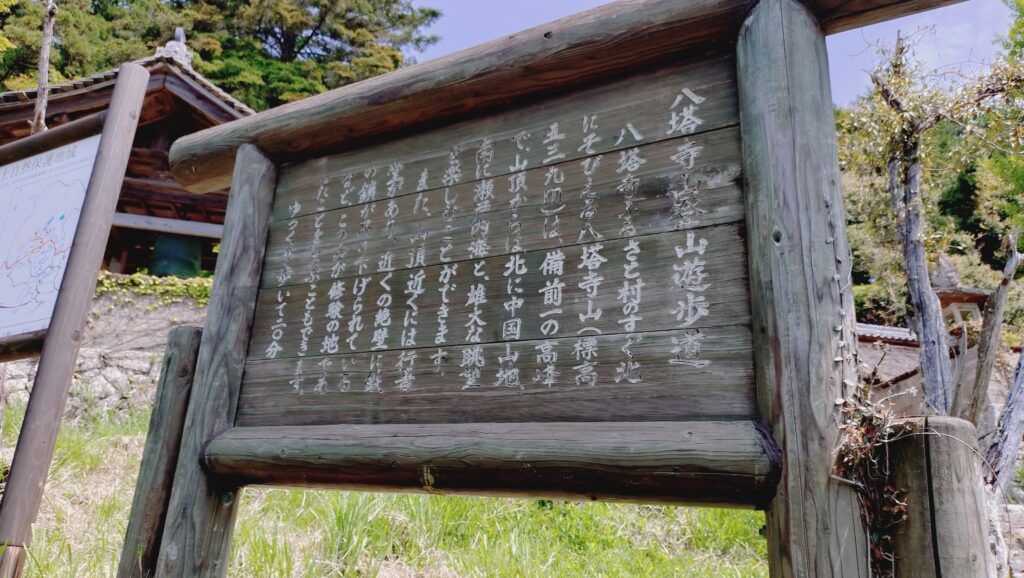 八塔寺山登山遊歩道
八塔寺ふるさと村のすぐ北
にそびえる八塔寺山(標高
五三九m)は、備前一の高峰
で、山頂からは北に中国山地、
南に瀬戸内海と、雄大な眺望
を楽しむことができます。
また、山頂近くには行者
堂があり、近くの絶壁に鉄
の鎖が下げられて
などところが修験の地
たことをしのぶこともできます。
ゆっくり歩いて二〇分
自然保護地域